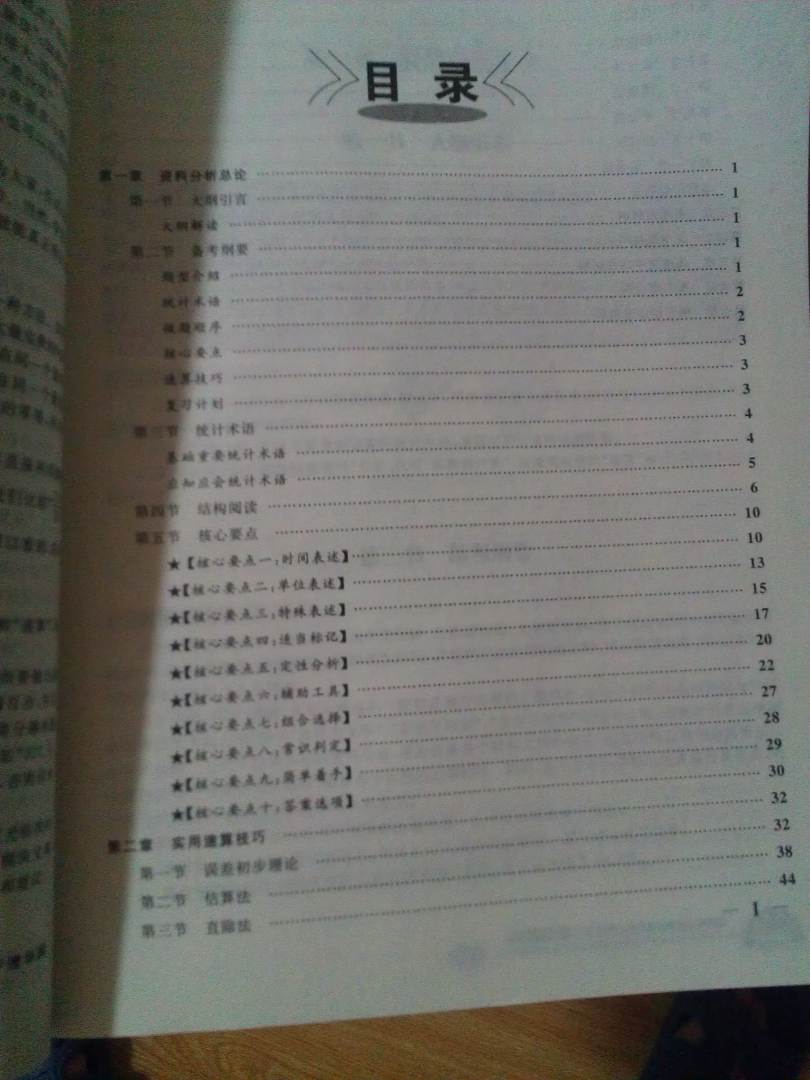 目录
第一章 资料分析总论 1
第一节 大纲引言 1
大纲解读 1
第二节 备考纲要 1
题型介绍 1
统计术语 2
做题顺序 2
核心要点 3
速算技巧 3
复习计划 3
第三节 统计术语 4
基础重要统计术语 4
应知应会统计术语 5
第四节 结构阅读 6
第五节 核心要点 10
★【核心要点一：时间表述】 10
★【核心要点二：单位表述】 13
★【核心要点三：特殊表述】 15
★【核心要点四：适当标记】 17
★【核心要点五：定性分析】 20
★【核心要点六：辅助工具】 22
★【核心要点七：组合选择】 27
★【核心要点八：常识判定】 28
★【核心要点九：简单着手】 29
★【核心要点十：答案选项】 30
第二章 实用速算技巧 32
第一节 误差初步理论 32
第二节 估算法 38
第三节 直除法 44
1